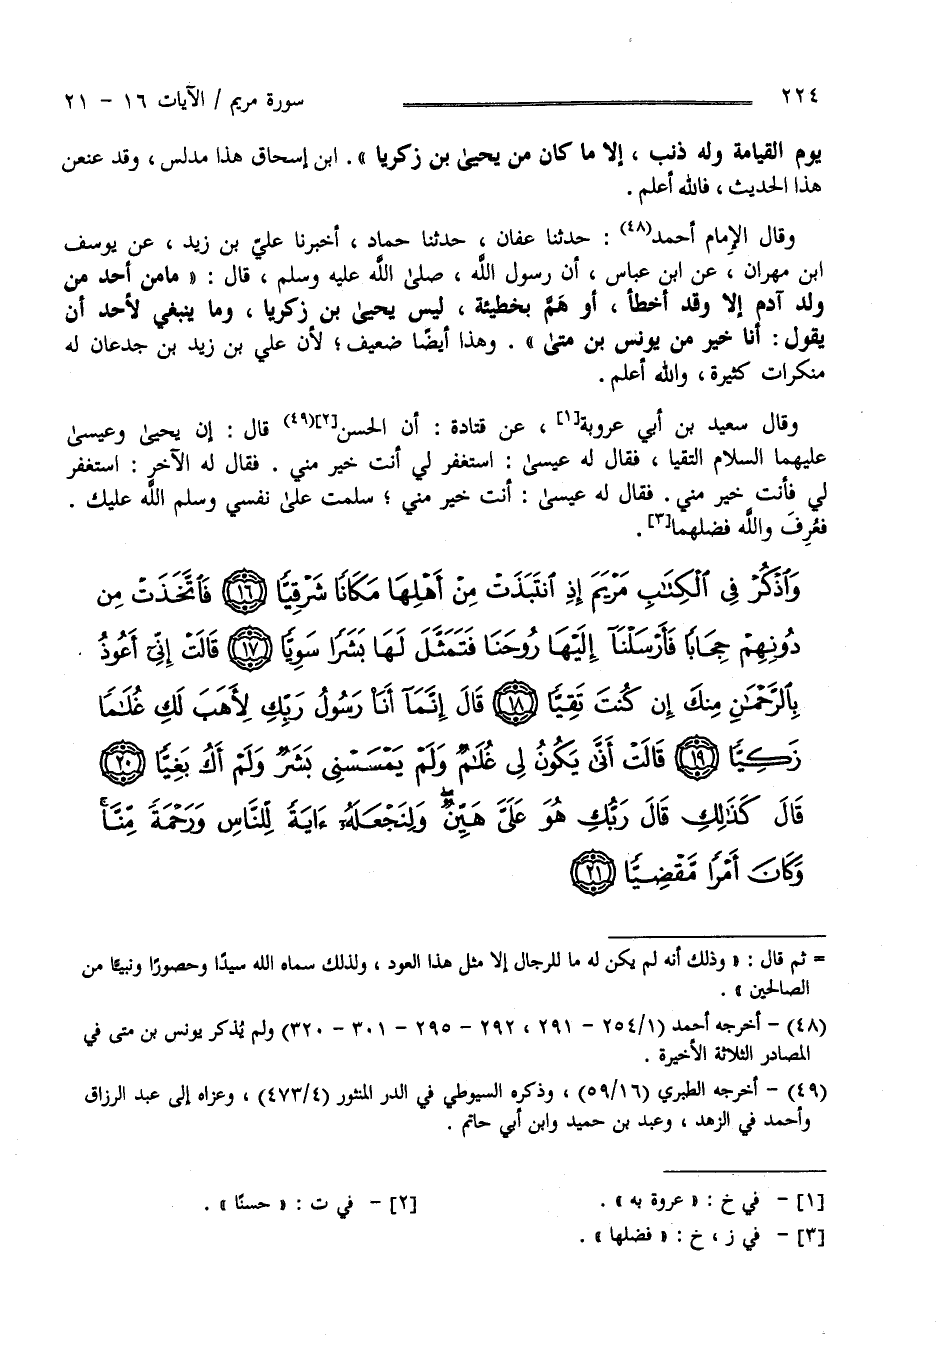 ٢٢٤ سورة مريم / الآيات ١٦ - ٢١
يوم القيامة وله ذنب ، إلا ما كان من يحيىٰ بن زكريا » . ابن إسحاق هذا مدلس ، وقد عنعن
هذا الحديث ، فالله أعلم .
وقال الإمام أحمد(٤٨) : حدثنا عفان ، حدثنا حماد ، أخبرنا عليّ بن زيد ، عن يوسف
ابن مهران ، عن ابن عباس ، أن رسول اللَّه ، صلىٰ اللَّه عليه وسلم ، قال : « مامن أحد من
ولد آدم إلا وقد أخطأ ، أو همَّ بخطيئة ، ليس يحيىٰ بن زكريا ، وما ينبغي لأحد أن
يقول : أنا خير من يونس بن متىٰ » . وهذا أيضًا ضعيف ؛ لأن علي بن زيد بن جدعان له
منكرات كثيرة ، والله أعلم .
وقال سعيد بن أبي عروبة[١] ، عن قتادة : أن الحسن[٢](٤٩) قال : إن يحيىٰ وعيسىٰ
عليهما السلام التقيا ، فقال له عيسىٰ : استغفر لي أنت خير مني . فقال له الآخر : استغفر
لي فأنت خير مني . فقال له عيسىٰ : أنت خير مني ؛ سلمت علىٰ نفسي وسلم اللَّه عليك .
فعُرِفَ واللَّه فضلهما[٣] .
وَٱذْكُرْ فِى ٱلْكِتَٰبِ مَرْيَمَ إِذِ ٱنتَبَذَتْ مِنْ أَهْلِهَا مَكَانًا شَرْقِيًّا ﴿١٦﴾ فَٱتَّخَذَتْ مِن
دُونِهِمْ حِجَابًا فَأَرْسَلْنَآ إِلَيْهَا رُوحَنَا فَتَمَثَّلَ لَهَا بَشَرًا سَوِيًّا ﴿١٧﴾ قَالَتْ إِنِّىٓ أَعُوذُ
بِٱلرَّحْمَٰنِ مِنكَ إِن كُنتَ تَقِيًّا ﴿١٨﴾ قَالَ إِنَّمَآ أَنَا۠ رَسُولُ رَبِّكِ لِأَهَبَ لَكِ غُلَٰمًا
زَكِيًّا ﴿١٩﴾ قَالَتْ أَنَّىٰ يَكُونُ لِى غُلَٰمٌ وَلَمْ يَمْسَسْنِى بَشَرٌ وَلَمْ أَكُ بَغِيًّا ﴿٢٠﴾
قَالَ كَذَٰلِكِ قَالَ رَبُّكِ هُوَ عَلَىَّ هَيِّنٌ ۖ وَلِنَجْعَلَهُۥٓ ءَايَةً لِّلنَّاسِ وَرَحْمَةً مِّنَّا ۚ
وَكَانَ أَمْرًا مَّقْضِيًّا ﴿٢١﴾
= ثم قال : « وذلك أنه لم يكن له ما للرجال إلا مثل هذا العود ، ولذلك سماه الله سيدًا وحصورًا ونبيًا من
الصالحين » .
(٤٨) - أخرجه أحمد (٢٥٤/١ - ٢٩١ ، ٢٩٢ - ٢٩٥ - ٣٠١ - ٣٢٠) ولم يُذكر يونس بن متى في
المصادر الثلاثة الأخيرة .
(٤٩) - أخرجه الطبري (٥٩/١٦) ، وذكره السيوطي في الدر المنثور (٤٧٣/٤) ، وعزاه إلى عبد الرزاق
وأحمد في الزهد ، وعبد بن حميد وابن أبي حاتم .
[١] - في خ : « عروة به » . [٢] - في ت : « حسنًا » .
[٣] - في ز ، خ : « فضلها » .